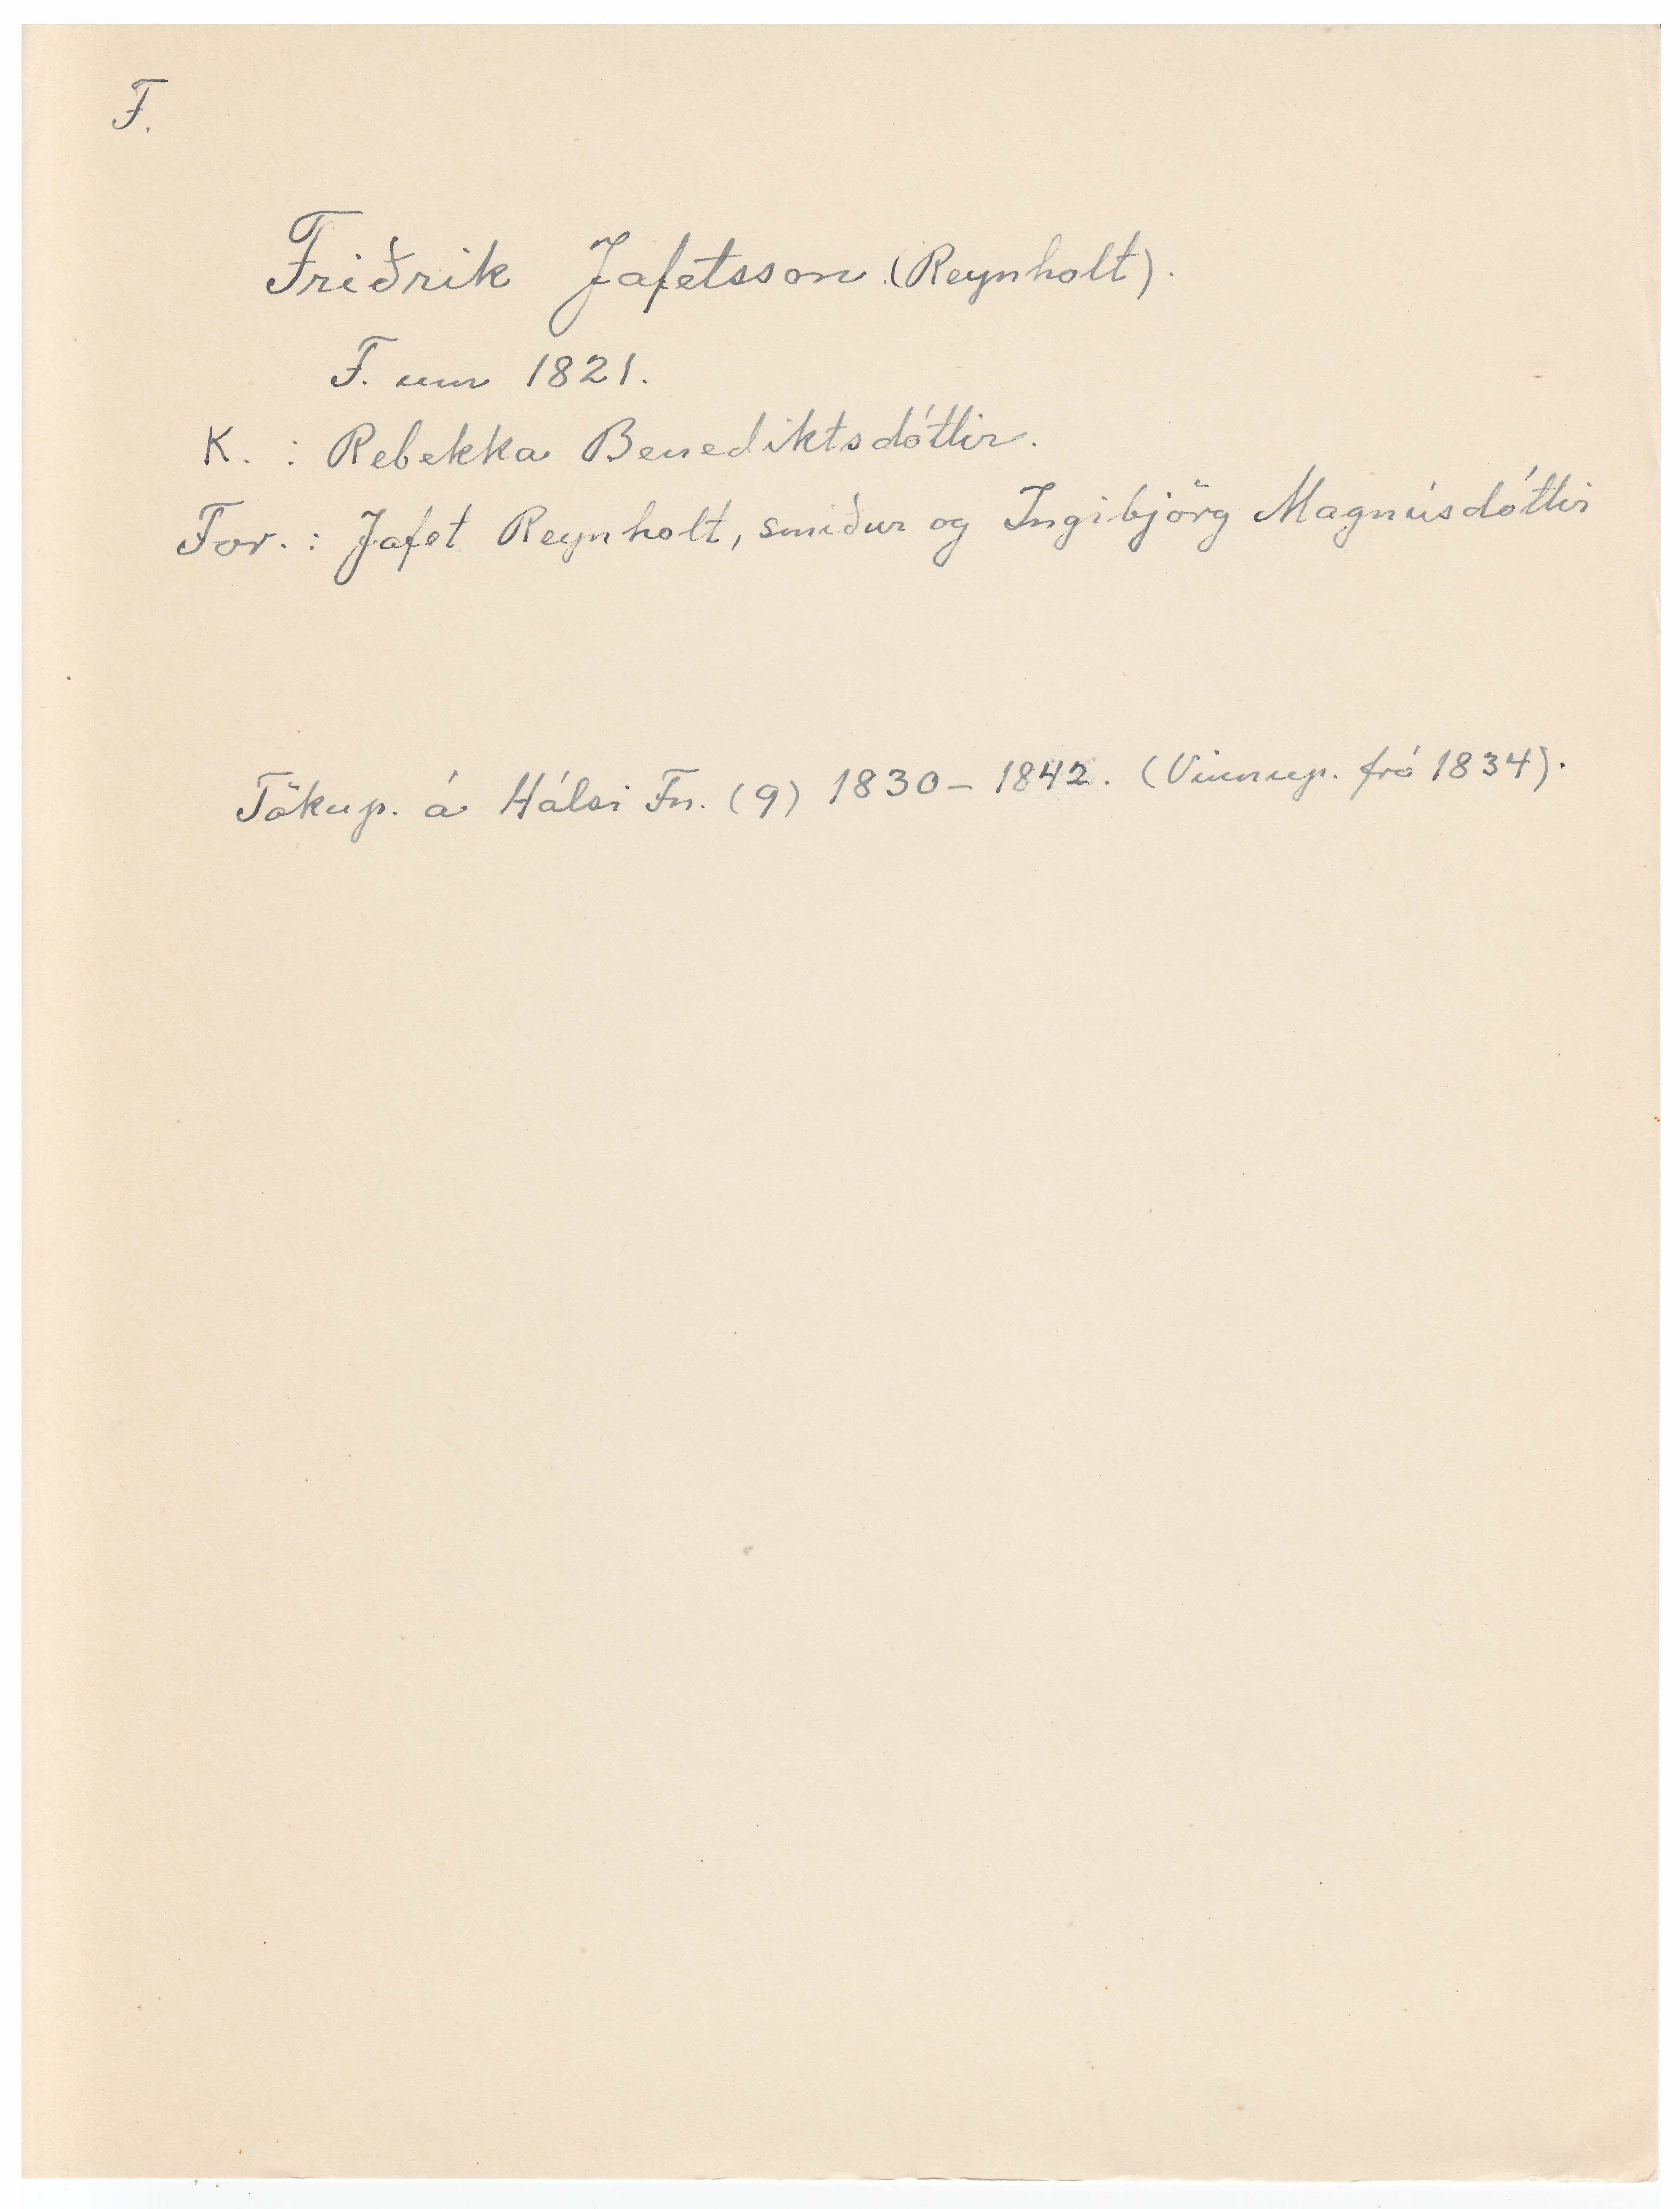 F.
Friðrik Jafetsson (Reynholt).
F. um 1821.
K. : Rebekka Benediktsdóttir.
For. : Jafet Reynholt, smiður og Ingibjörg Magnúsdóttir
Tökup. á Hálsi Fn. (9) 1830 - 1842. (Vinnup. frá 1834).